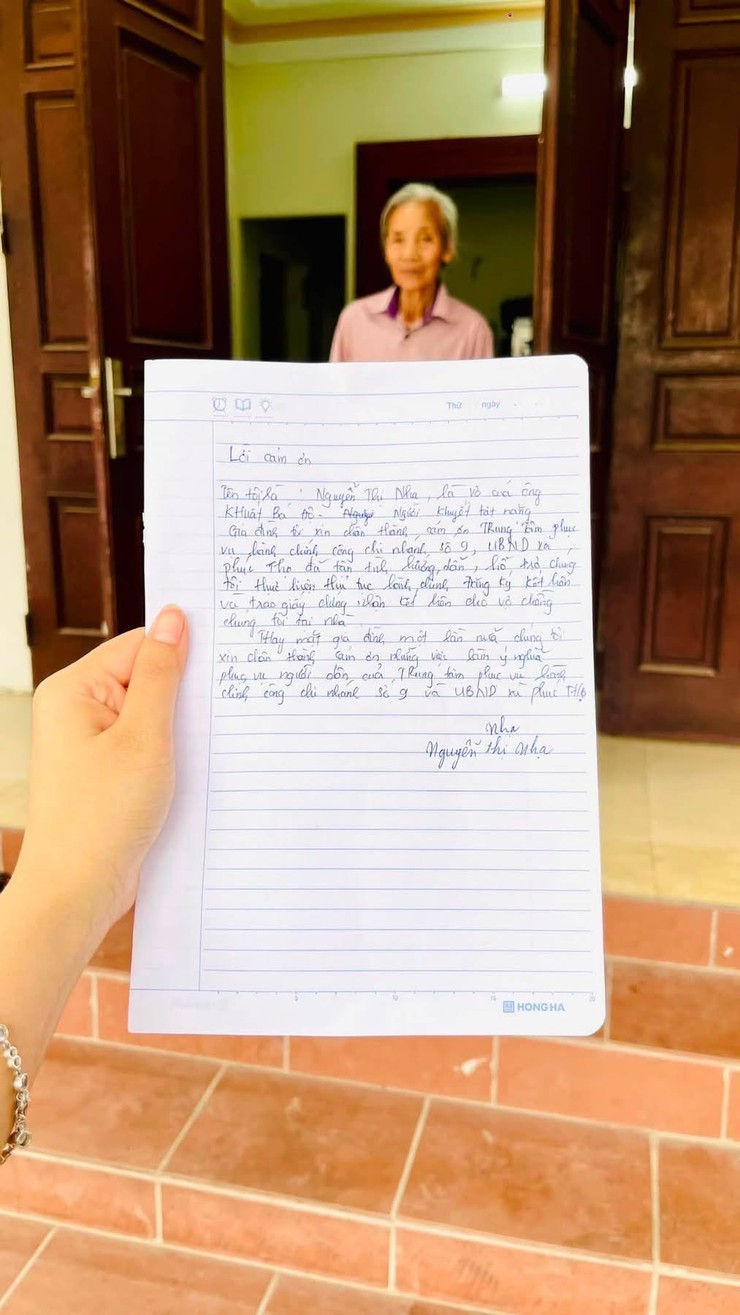 Thứ ngày . .
Lời cảm ơn
Tên tôi là : Nguyễn Thị Nhạ, là vợ của ông
Khuất Bá Độ - Người khuyết tật nặng
Gia đình tôi xin chân thành cảm ơn Trung tâm phục
vụ hành chính công chi nhánh số 9, UBND xã
phúc Thọ đã tận tình hướng dẫn, hỗ trợ chúng
tôi thực hiện thủ tục hành chính đăng ký kết hôn
và trao giấy chứng nhận kết hôn cho vợ chồng
chúng tôi tại nhà
Thay mặt gia đình một lần nữa chúng tôi
xin chân thành cảm ơn những việc làm ý nghĩa
phục vụ người dân của Trung tâm phục vụ hành
chính công chi nhánh số 9 và UBND xã phúc Thọ
Nhạ
Nguyễn Thị Nhạ
5 10 15 20
HONG HA